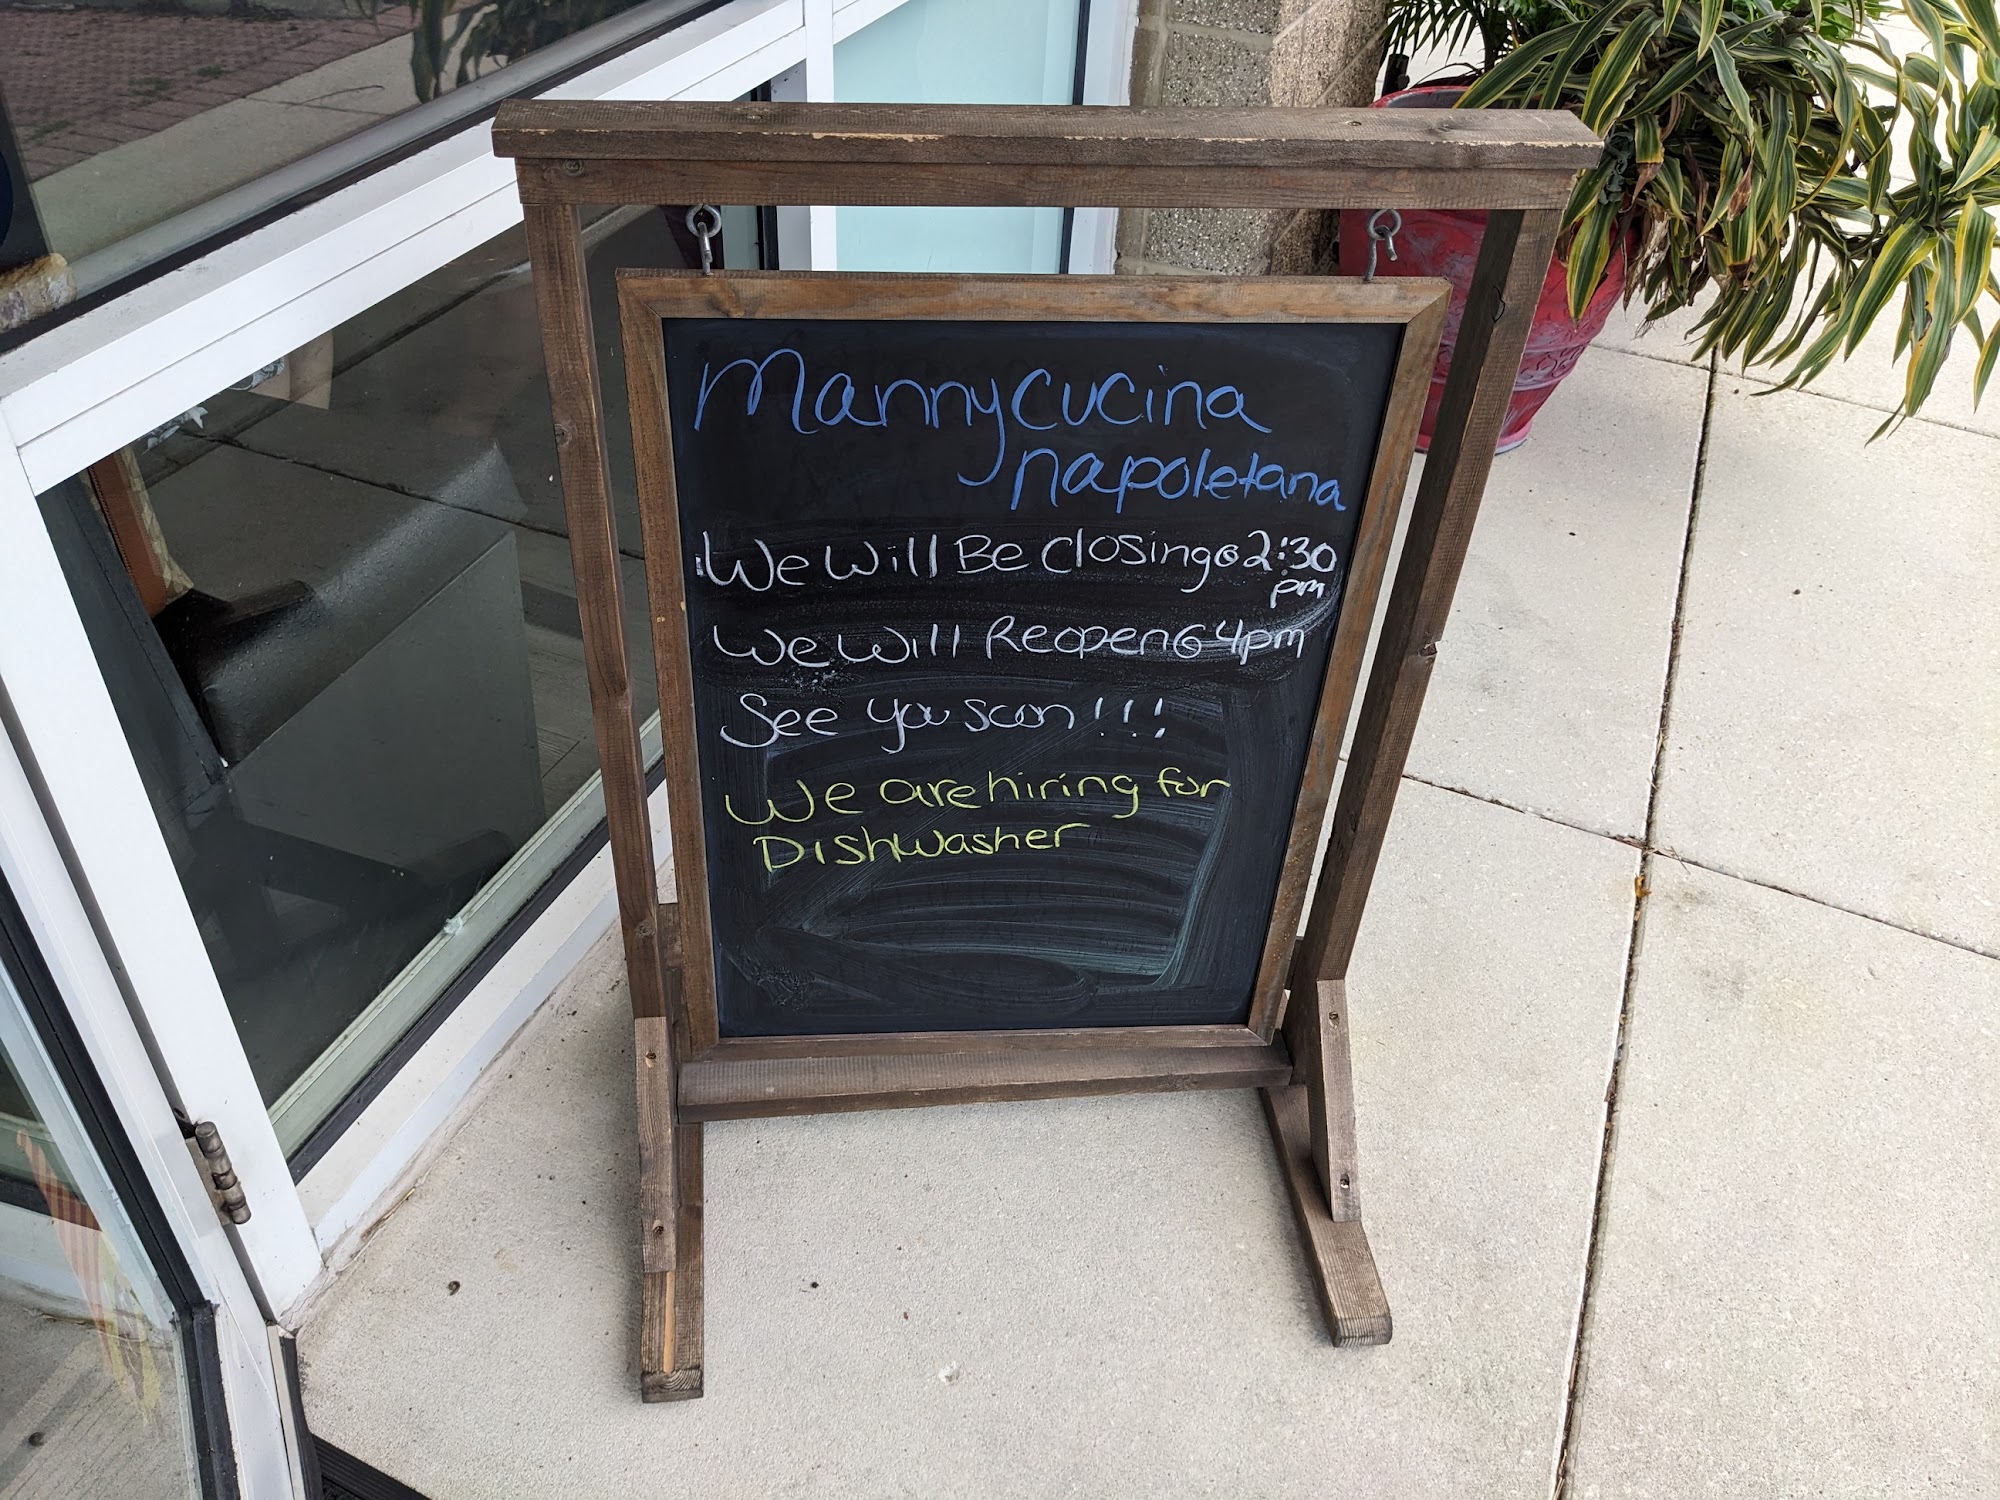 Manny cucina
napoletana
We Will Be closing @ 2:30
pm
We Will Reopen @ 4pm
See you soon!!!
We are hiring for
Dishwasher